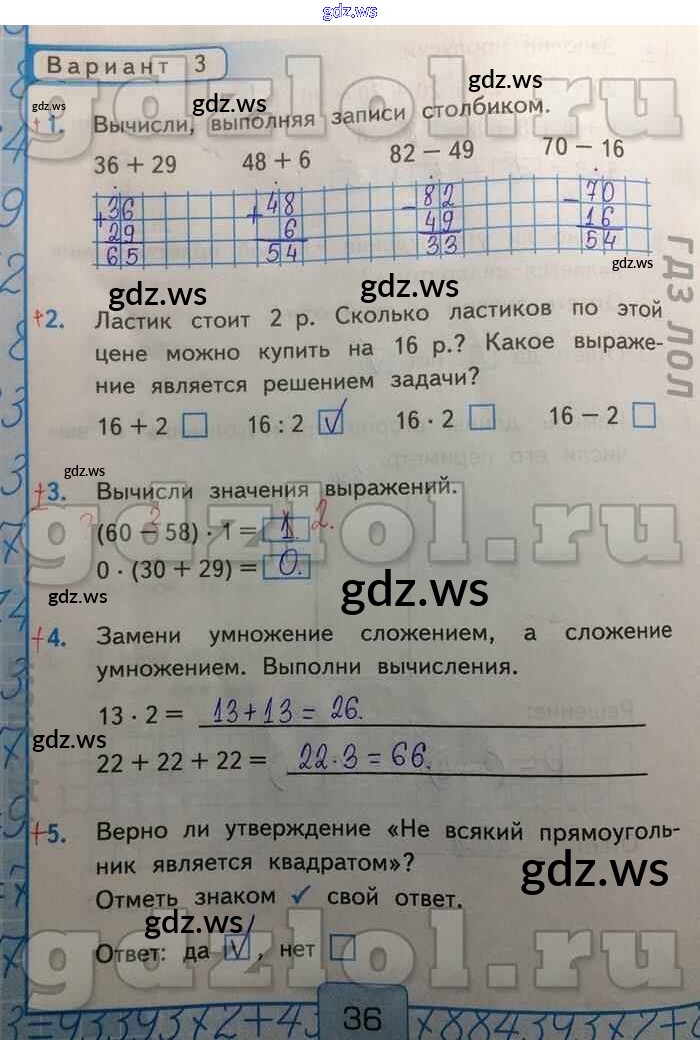 gdz.ws
Вариант 3
gdzlol.ru
gdz.ws
gdz.ws
+1. Вычисли, выполняя записи столбиком.
36 + 29 48 + 6 82 − 49 70 − 16
+36 +48 −82 −70
29 6 49 16
65 54 33 54
gdz.ws
gdz.ws
gdz.ws
гдз лол
+2. Ластик стоит 2 р. Сколько ластиков по этой
цене можно купить на 16 р.? Какое выраже-
ние является решением задачи?
16 + 2 16 : 2 √ 16 · 2 16 − 2
gdz.ws
+3. Вычисли значения выражений.
gdzlol.ru
(60 − 58) · 1 = 1. 2.
0 · (30 + 29) = 0.
gdz.ws
gdz.ws
+4. Замени умножение сложением, а сложение
умножением. Выполни вычисления.
13 · 2 = 13+13 = 26.
gdz.ws
22 + 22 + 22 = 22·3 = 66.
+5. Верно ли утверждение «Не всякий прямоуголь-
ник является квадратом»?
gdz.ws
Отметь знаком ✓ свой ответ.
gdz.ws
gdzlol.ru
Ответ: да √, нет
36